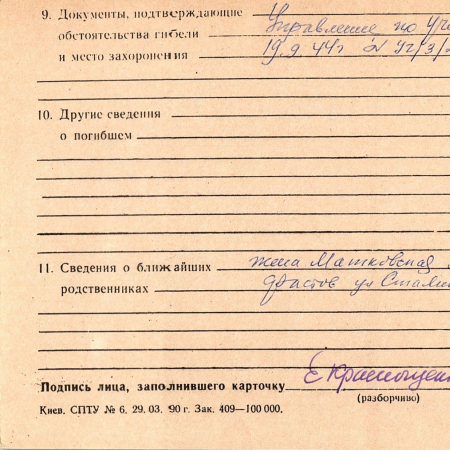 9. Документы, подтверждающие Управление по уче
обстоятельства гибели 19.9.44г N уг/3/
и место захоронения
10. Другие сведения
о погибшем
11. Сведения о ближайших жена Матковская
родственниках Фастов ул Стали
Подпись лица, заполнившего карточку
(разборчиво)
Киев. СПТУ № 6. 29. 03. 90 г. Зак. 409—100 000.